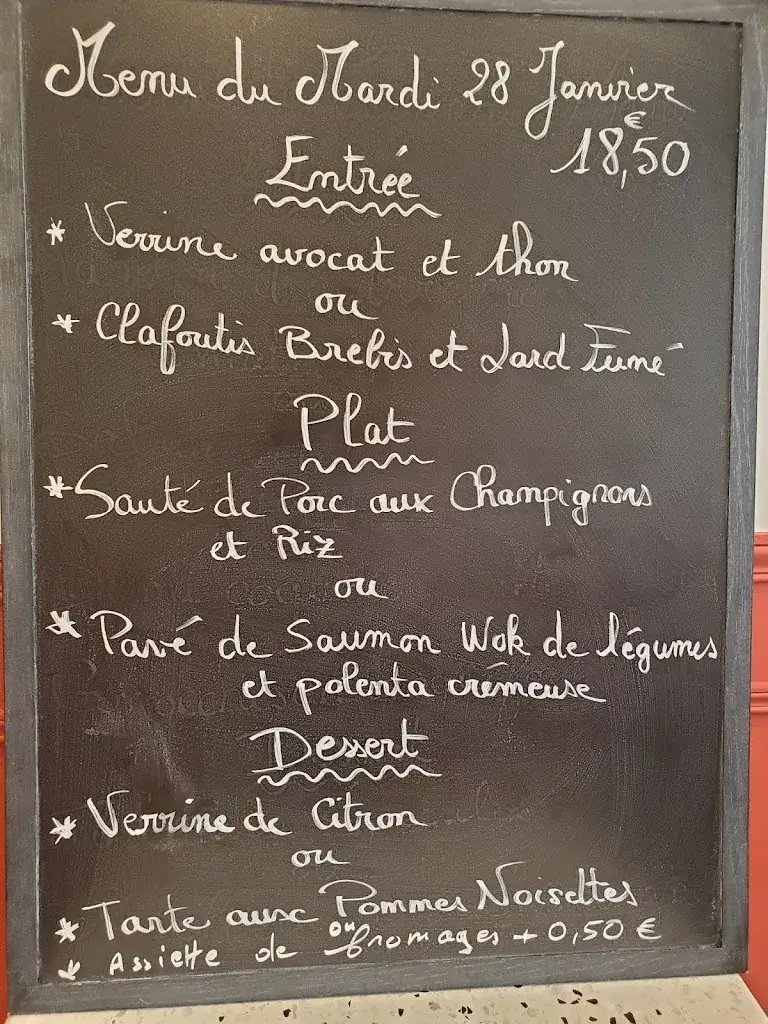 Menu du Mardi 28 Janvier
18,50 €
Entrée
* Verrine avocat et thon
ou
* Clafoutis Brebis et Lard Fumé
Plat
* Sauté de Porc aux Champignons
et Riz
ou
* Pavé de Saumon Wok de légumes
et polenta crémeuse
Dessert
* Verrine de Citron
ou
* Tarte aux Pommes Noisettes
ou
* Assiette de fromages + 0,50 €